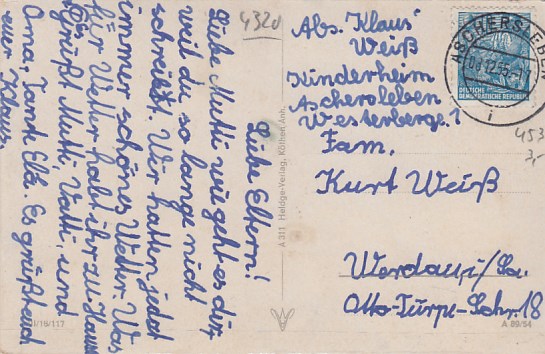 4320
Liebe Eltern!
Liebe Mutti wie geht es dir
weil du so lange nicht
schreibst. Wir hatten jedat
immer schönes Wetter. Was
für Wetter habt ihr zu Haus
Es grüßt Mutti, Vatti, und
Oma, Tante Els. Es grüßt euch
euer Klaus.
III/18/117
A 311 Heldge-Verlag, Köthen-Anh.
Abs. "Klaus"
Weiß
Kinderheim
Aschersleben
Westerberge. 1
Fam.
Kurt Weiß
Werdau, i/Sa.
Otto-Türpe-Schr. 18
A 89/54
ASCHERSLEBEN
i
DEUTSCHE
DEMOKRATISCHE REPUBLIK
453
3,-